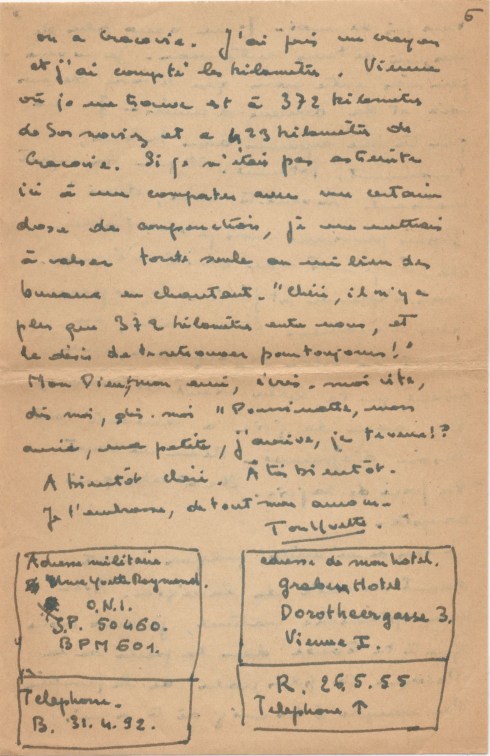 6
ou a Cracovie. J'ai pris un crayon
et j'ai compté les kilomètres. Vienne
où je me trouve est à 372 kilomètres
de Sosnoviez et a 423 kilomètres de
Cracovie. Si je n'étais pas astreinte
ici à me comporter avec une certaine
dose de componction, je me mettrais
à valser toute seule au milieu des
bureaux en chantant. "Chéri, il n'y a
plus que 372 kilomètres entre nous, et
le désir de te retrouver pour toujours!"
Mon Dieu, mon ami, écris-moi vite,
dis moi, dis-moi "Poussinette, mon
amie, ma petite, j'arrive, je te veux!?
A bientôt chéri. À très bientôt.
Je t'embrasse, de tout mon amour.
Ton Yvette.
Adresse militaire.
Mme Yvette Raymond.
O.N.I.
S.P. 50460.
BPM 601.
Telephone.
B. 31.4.92.
adresse de mon hotel.
Graben Hotel
Dorotheergasse 3.
Vienne I.
R. 26.5.55
Telephone ↑